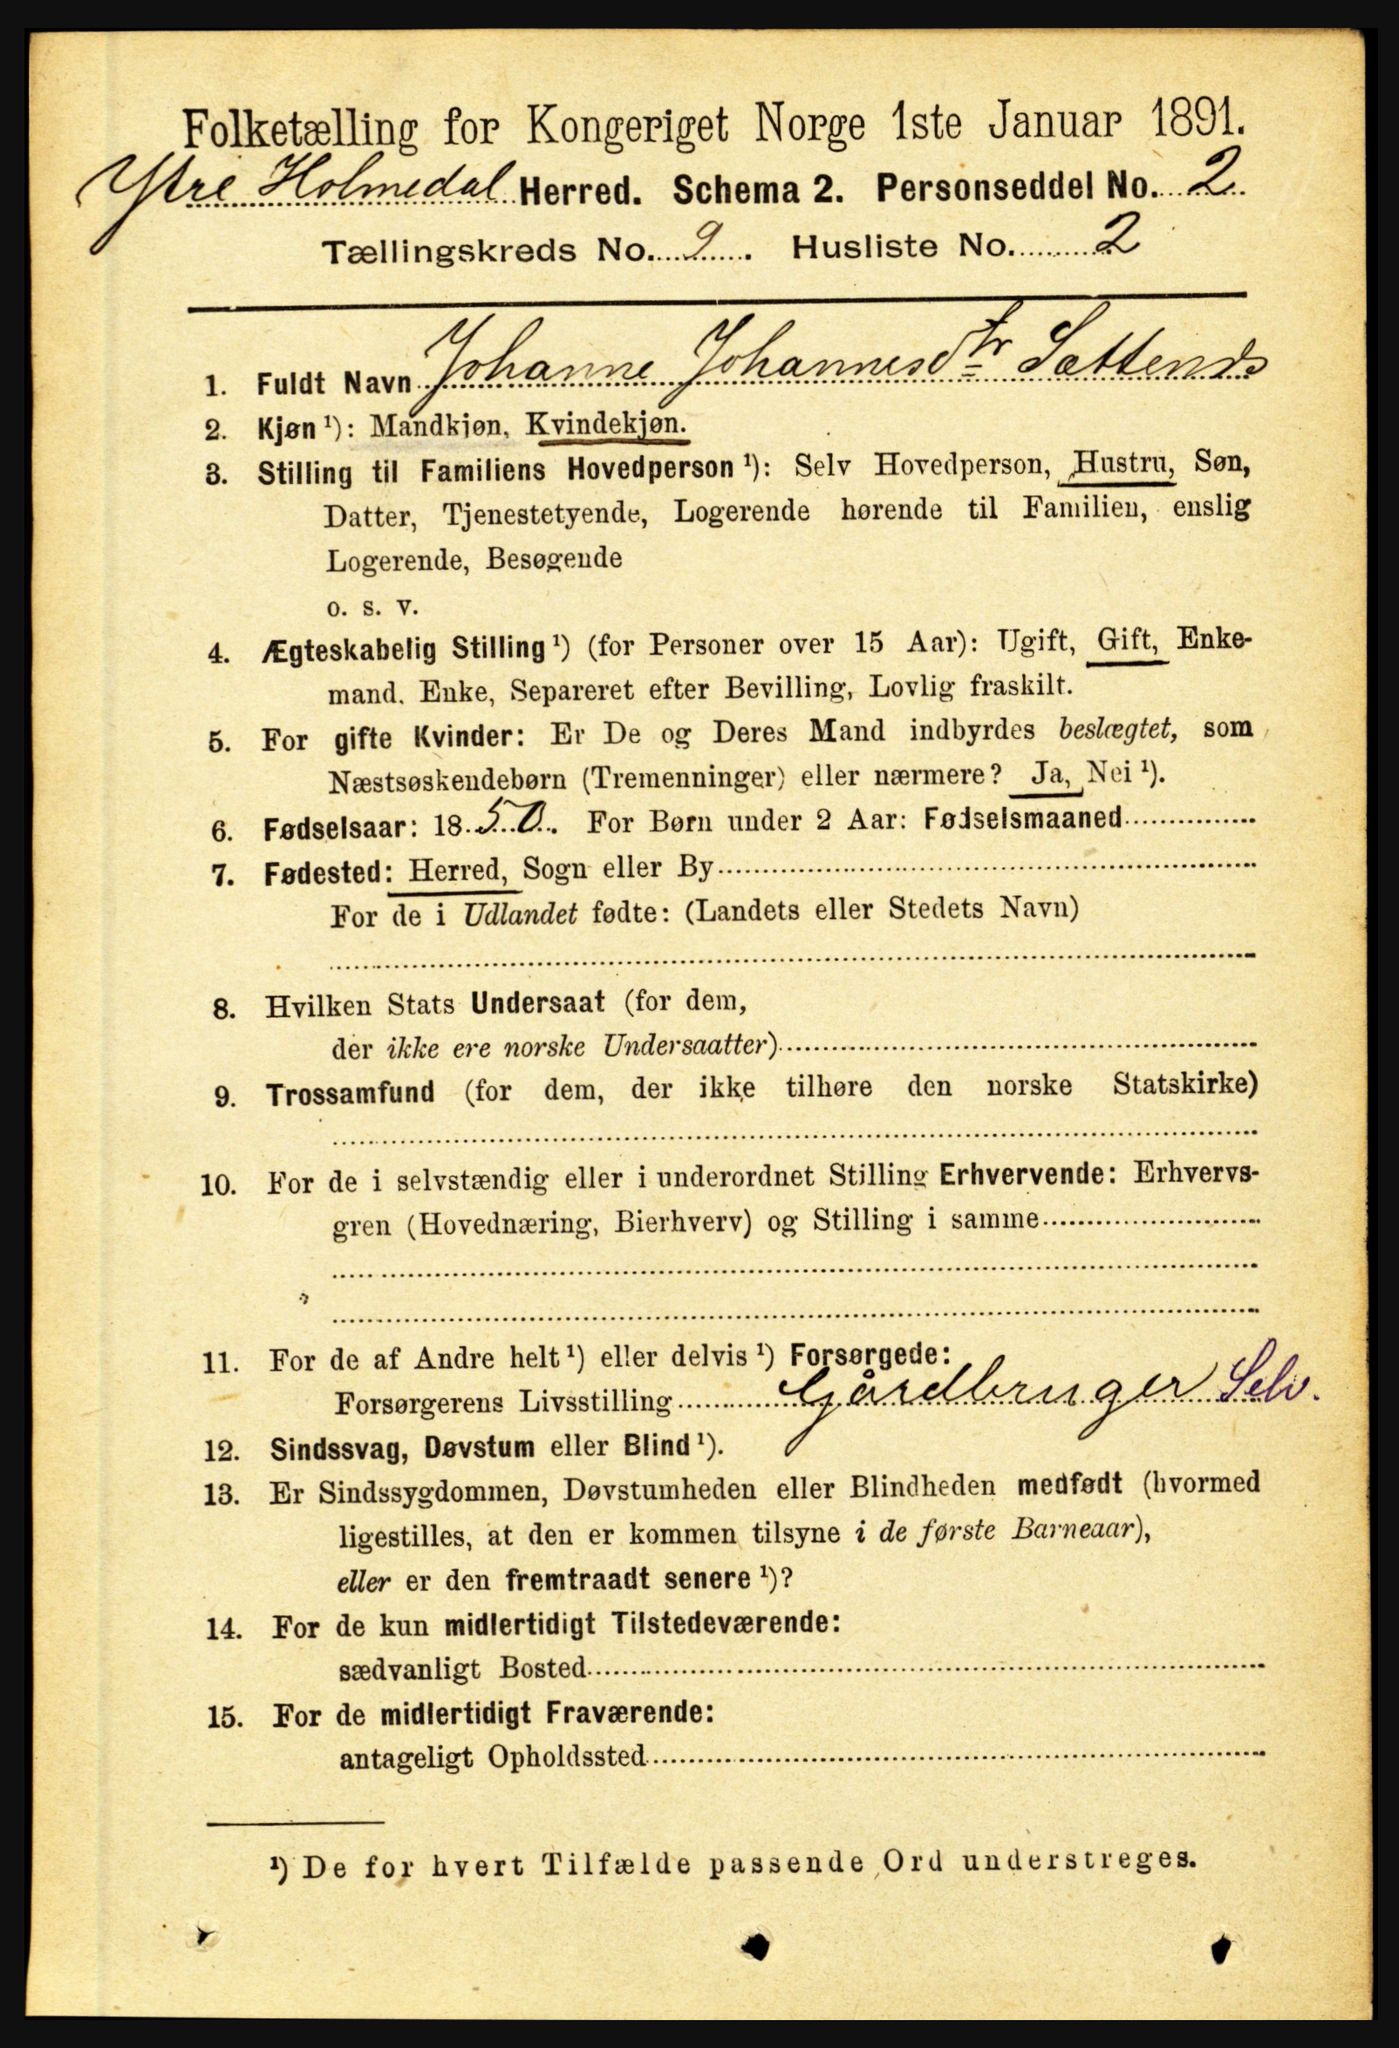 Folketælling for Kongeriget Norge 1ste Januar 1891.
Ytre Holmedal Herred. Schema 2. Personseddel No. 2.
Tællingskreds No. 9. Husliste No. 2
1. Fuldt Navn Johanne Johannesdtr
2. Kjøn ¹): Mandkjøn, Kvindekjøn.
3. Stilling til Familiens Hovedperson ¹): Selv Hovedperson, Hustru, Søn,
Datter, Tjenestetyende, Logerende hørende til Familien, enslig
Logerende, Besøgende
o. s. v.
4. Ægteskabelig Stilling ¹) (for Personer over 15 Aar): Ugift, Gift, Enke-
mand, Enke, Separeret efter Bevilling, Lovlig fraskilt.
5. For gifte Kvinder: Er De og Deres Mand indbyrdes beslægtet, som
Næstsøskendebørn (Tremenninger) eller nærmere? Ja, Nei ¹).
6. Fødselsaar: 1850. For Børn under 2 Aar: Fødselsmaaned
7. Fødested: Herred, Sogn eller By
For de i Udlandet fødte: (Landets eller Stedets Navn)
8. Hvilken Stats Undersaat (for dem,
der ikke ere norske Undersaatter)
9. Trossamfund (for dem, der ikke tilhøre den norske Statskirke)
10. For de i selvstændig eller i underordnet Stilling Erhvervende: Erhvervs-
gren (Hovednæring, Bierhverv) og Stilling i samme
11. For de af Andre helt ¹) eller delvis ¹) Forsørgede:
Forsørgerens Livsstilling Gårdbruger Selv.
12. Sindssvag, Døvstum eller Blind ¹).
13. Er Sindssygdommen, Døvstumheden eller Blindheden medfødt (hvormed
ligestilles, at den er kommen tilsyne i de første Barneaar),
eller er den fremtraadt senere ¹)?
14. For de kun midlertidigt Tilstedeværende:
sædvanligt Bosted
15. For de midlertidigt Fraværende:
antageligt Opholdssted
¹) De for hvert Tilfælde passende Ord understreges.